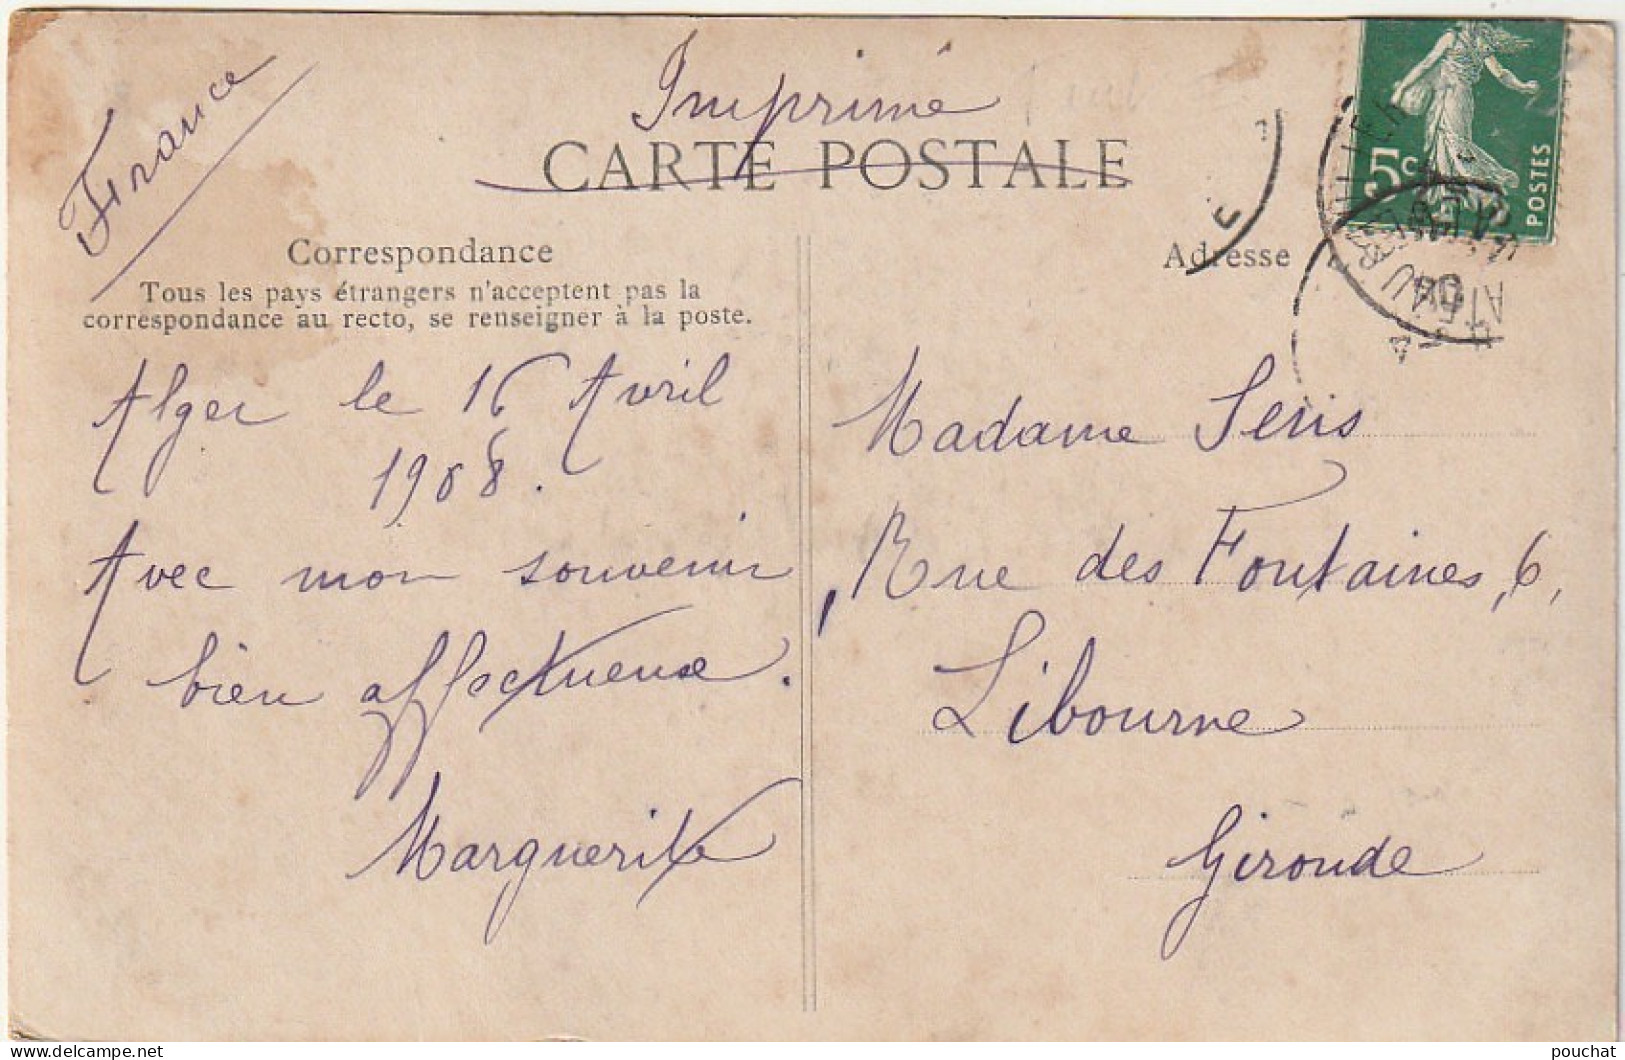 France
Imprimé
CARTE POSTALE
Correspondance
Tous les pays étrangers n'acceptent pas la
correspondance au recto, se renseigner à la poste.
Alger le 16 Avril
1908.
Avec mon souvenir
bien affectueux.
Marguerite
Adresse
5c
POSTES
Madame Seris
Rue des Fontaines, 6,
Libourne
Gironde
delcampe.net
pouchat